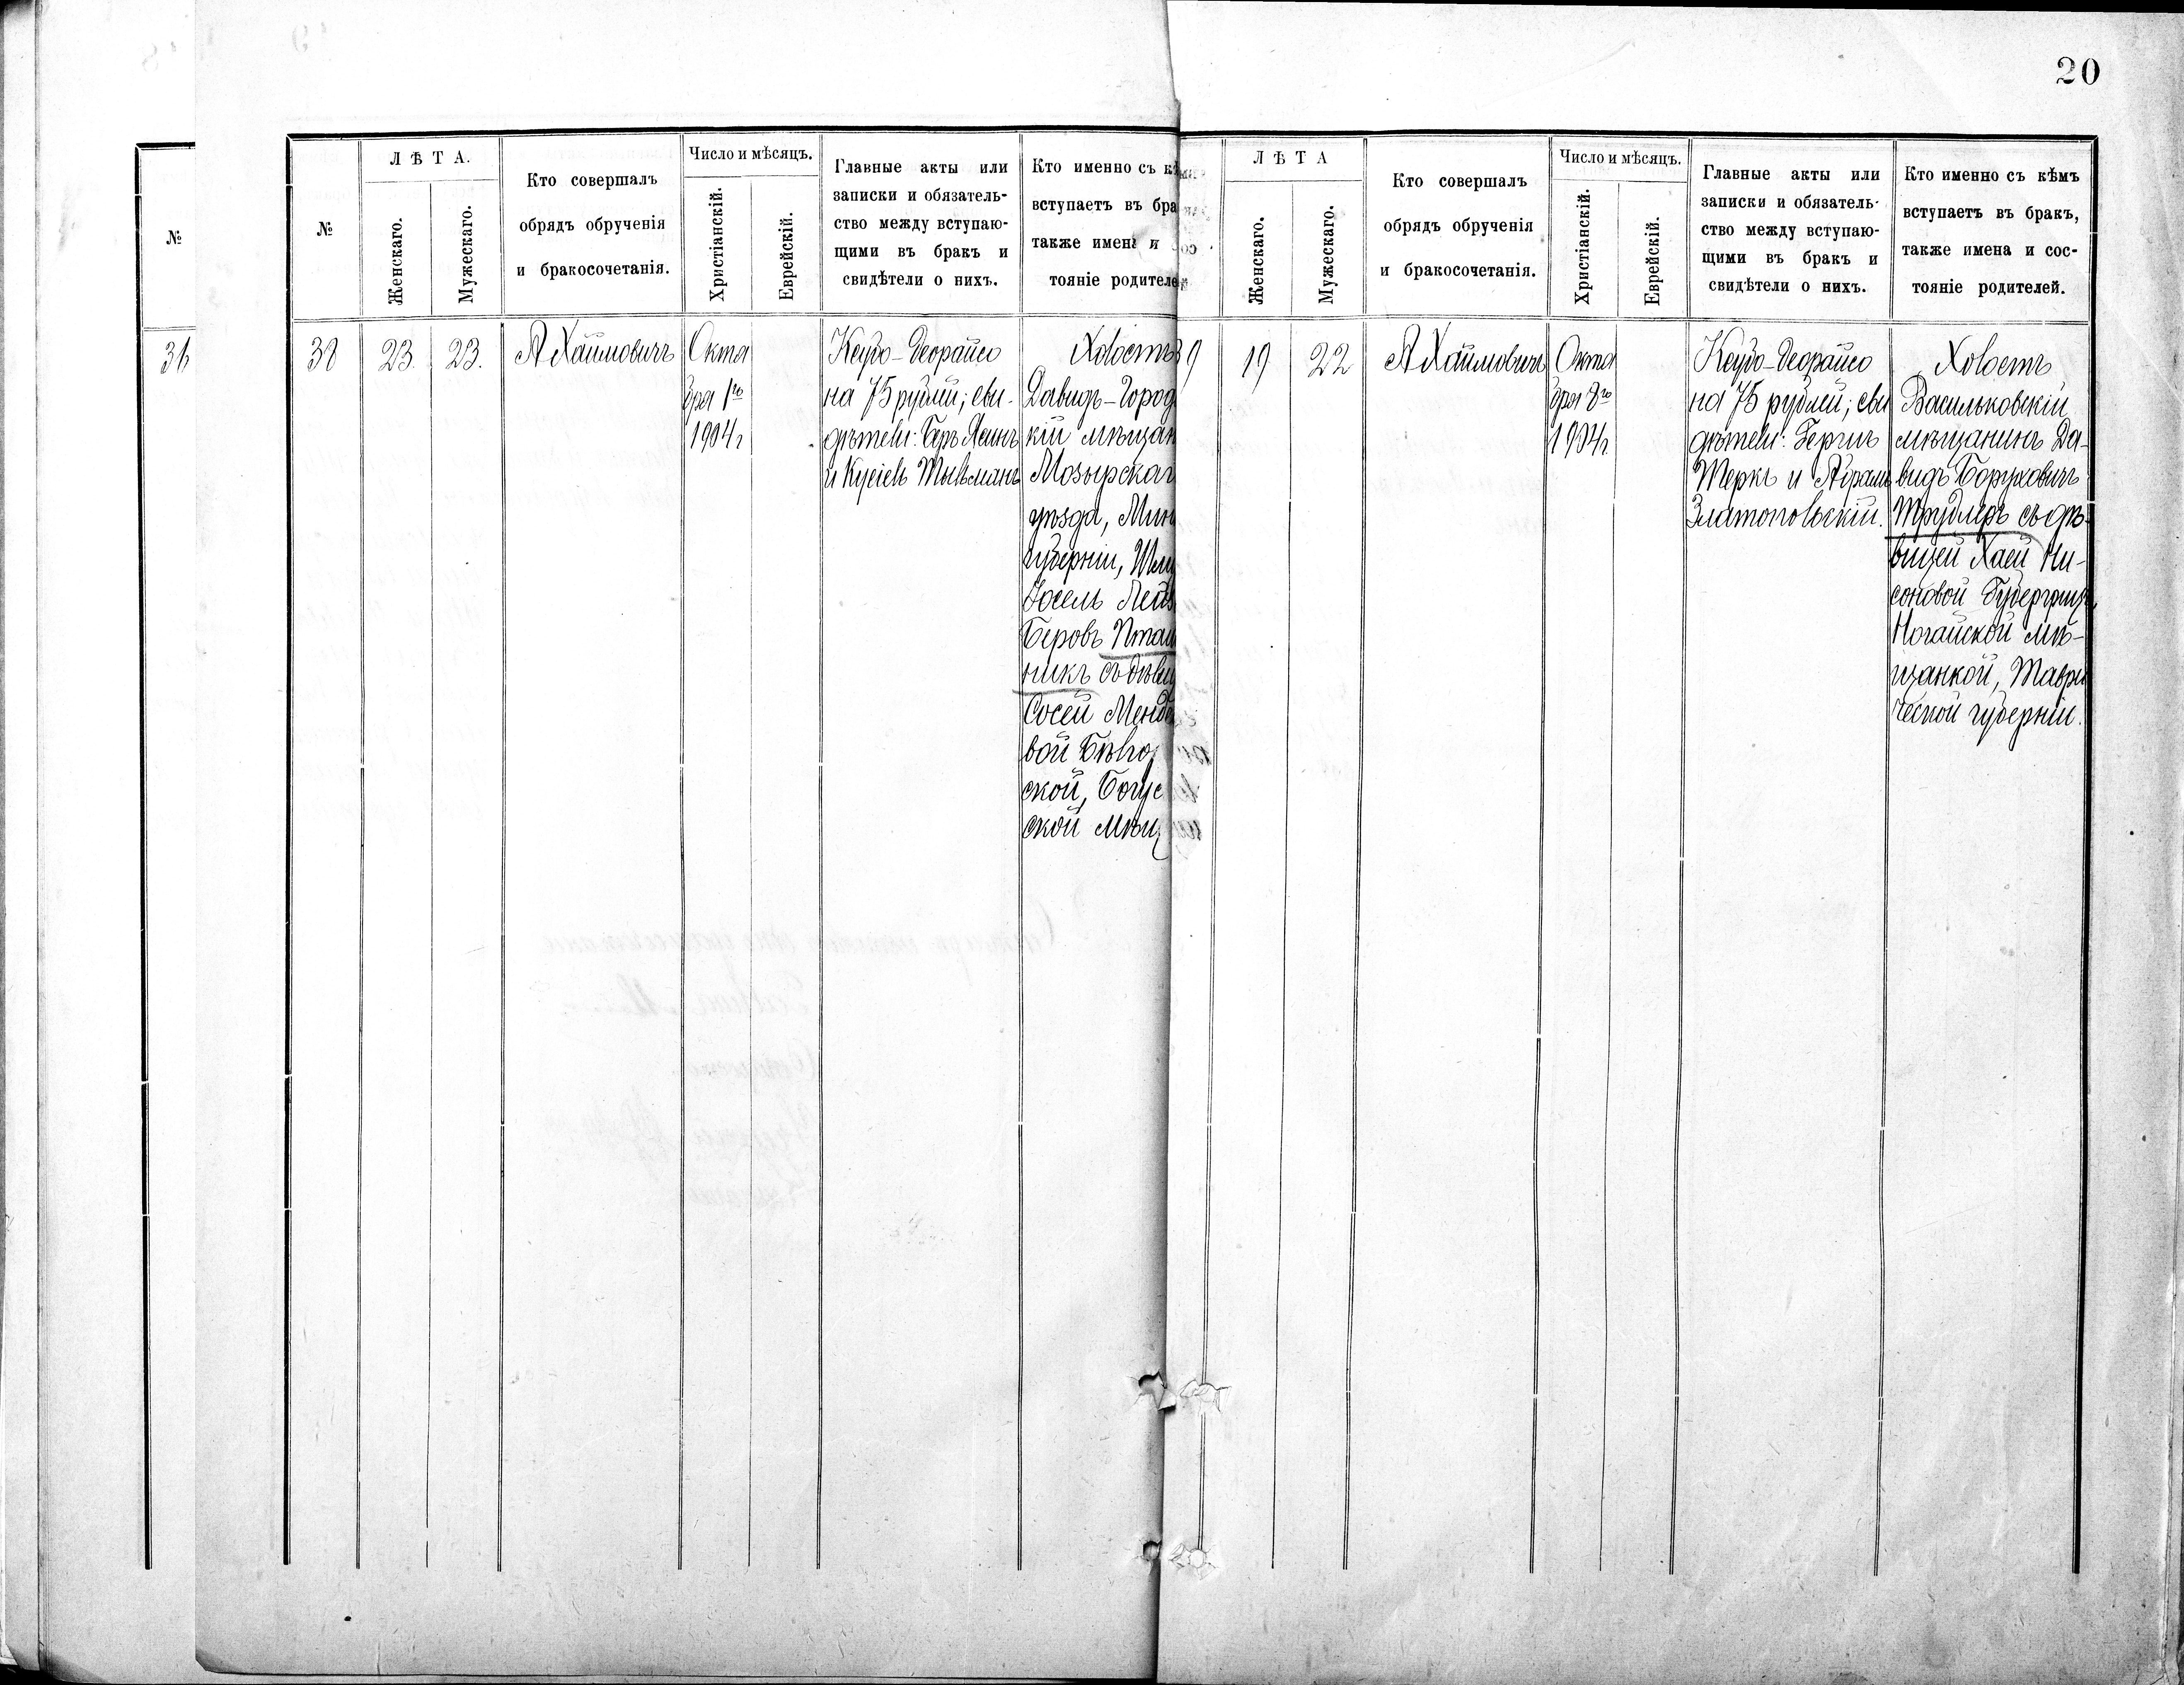 20
№
36
№
ЛѢТА.
Женскаго.
Мужескаго.
Кто совершалъ
обрядъ обрученія
и бракосочетанія.
Число и мѣсяцъ.
Христіанскій.
Еврейскій.
Главные акты или
записки и обязатель-
ство между вступаю-
щими въ бракъ и
свидѣтели о нихъ.
Кто именно съ кѣ
вступаетъ въ бра
также имена и
тояніе родителе
38
23.
23.
А Хаимовичъ
Октя
бря 1го
1904г
Кеубо-Деорайсо
на 75 рублей; сви-
дѣтели: Беръ
и Кусіель Тыльманъ
Холостъ
Давидъ-Город
кій мѣщан
Мозырскаг
уѣзда, Мин
губерніи,
Іосель Лейб
Беровъ Пташ
никъ съ дѣви
Сосей Менде
вой
ской, Богус
ской мѣщ
ЛѢТА
Женскаго.
Мужескаго.
Кто совершалъ
обрядъ обрученія
и бракосочетанія.
Число и мѣсяцъ.
Христіанскій.
Еврейскій.
Главные акты или
записки и обязатель-
ство между вступаю-
щими въ бракъ и
свидѣтели о нихъ.
Кто именно съ кѣмъ
вступаетъ въ бракъ,
также имена и сос-
тояніе родителей.
9
19
22
А Хаимовичъ
Октя
бря 8го
1904г.
Кеубо-Деорайсо
на 75 рублей; сви
дѣтели: Гершъ
Теркъ и Абрамъ
Златопольскій.
Холостъ
Васильковскій
мѣщанинъ Да-
видъ Боруховичъ
Трудлеръ съ дѣ-
вицей Хаей Ни-
соновой
Ногайской мѣ-
щанкой, Таври
ческой губерніи.